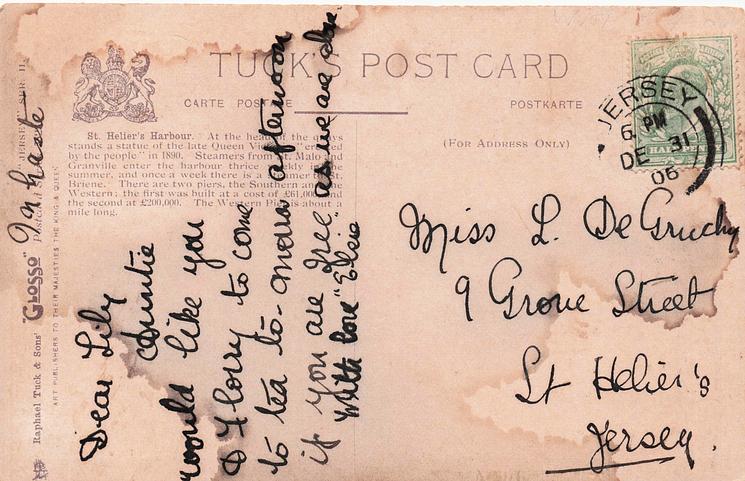 TUCK'S POST CARD
CARTE POSTALE
POSTKARTE
(FOR ADDRESS ONLY)
St. Helier's Harbour. At the head of the quays
stands a statue of the late Queen Vic "erected
by the people" in 1890. Steamers from St. Malo and
Granville enter the harbour thrice weekly in the
summer, and once a week there is a steamer to St.
Briene. There are two piers, the Southern and the
Western; the first was built at a cost of £61,000
the second at £200,000. The Western Pier is about a
mile long.
Raphael Tuck & Sons' "GLOSSO" Postcard JERSEY SER. II.
ART PUBLISHERS TO THEIR MAJESTIES THE KING & QUEEN
In haste
Dear Lily
Auntie
would like you
& Florry to come
to tea to-morrow afternoon
if you are free as we are alone
With love "Elsie"
JERSEY
6 PM
DE 31
06
HALFPENNY
Miss L. De Gruchy
9 Grove Street
St Helier's
Jersey.